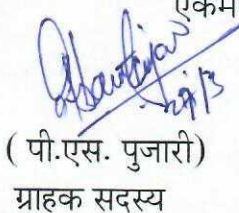 एकम
29/3
( पी.एस. पुजारी)
ग्राहक सदस्य